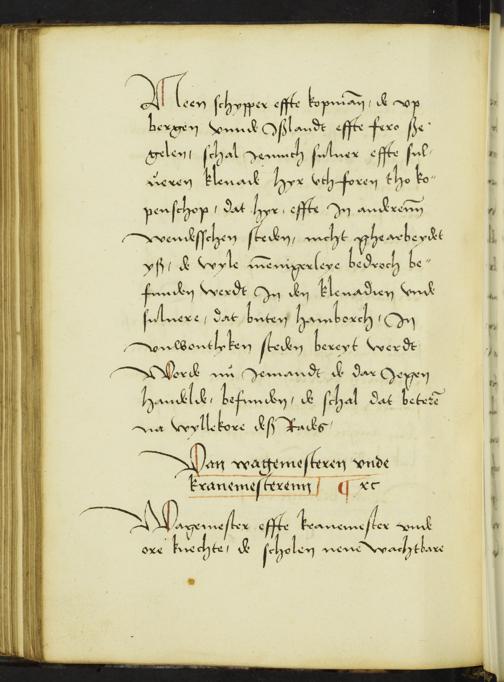 Neen schypper effte kopman̄, de vp
bergen vnnde Jßlandt effte fero ße-
gelen, schal Jennich suluer effte sul-
ueren klenade hyr vth foren tho ko-
penschop, dat hyr, effte Jn anderenn̄
wendesschen steden, nicht ghearbeydet
yß, de wyle men̄nigerleye bedroch be-
funden werdt Jn den klenadien vnde
suluere, dat buten hamborch, Jn
vnwontlyken steden bereyt werdt
Worde nū Jemandt de dar Jegen
handelde, befunden, de schal dat beterē
na wyllekore deß Rades,
Van wagemesteren vnde
kranemesterenn ¶ xc
Wagemester effte kranemester vnde
ore knechte, de scholen nene wachtbare